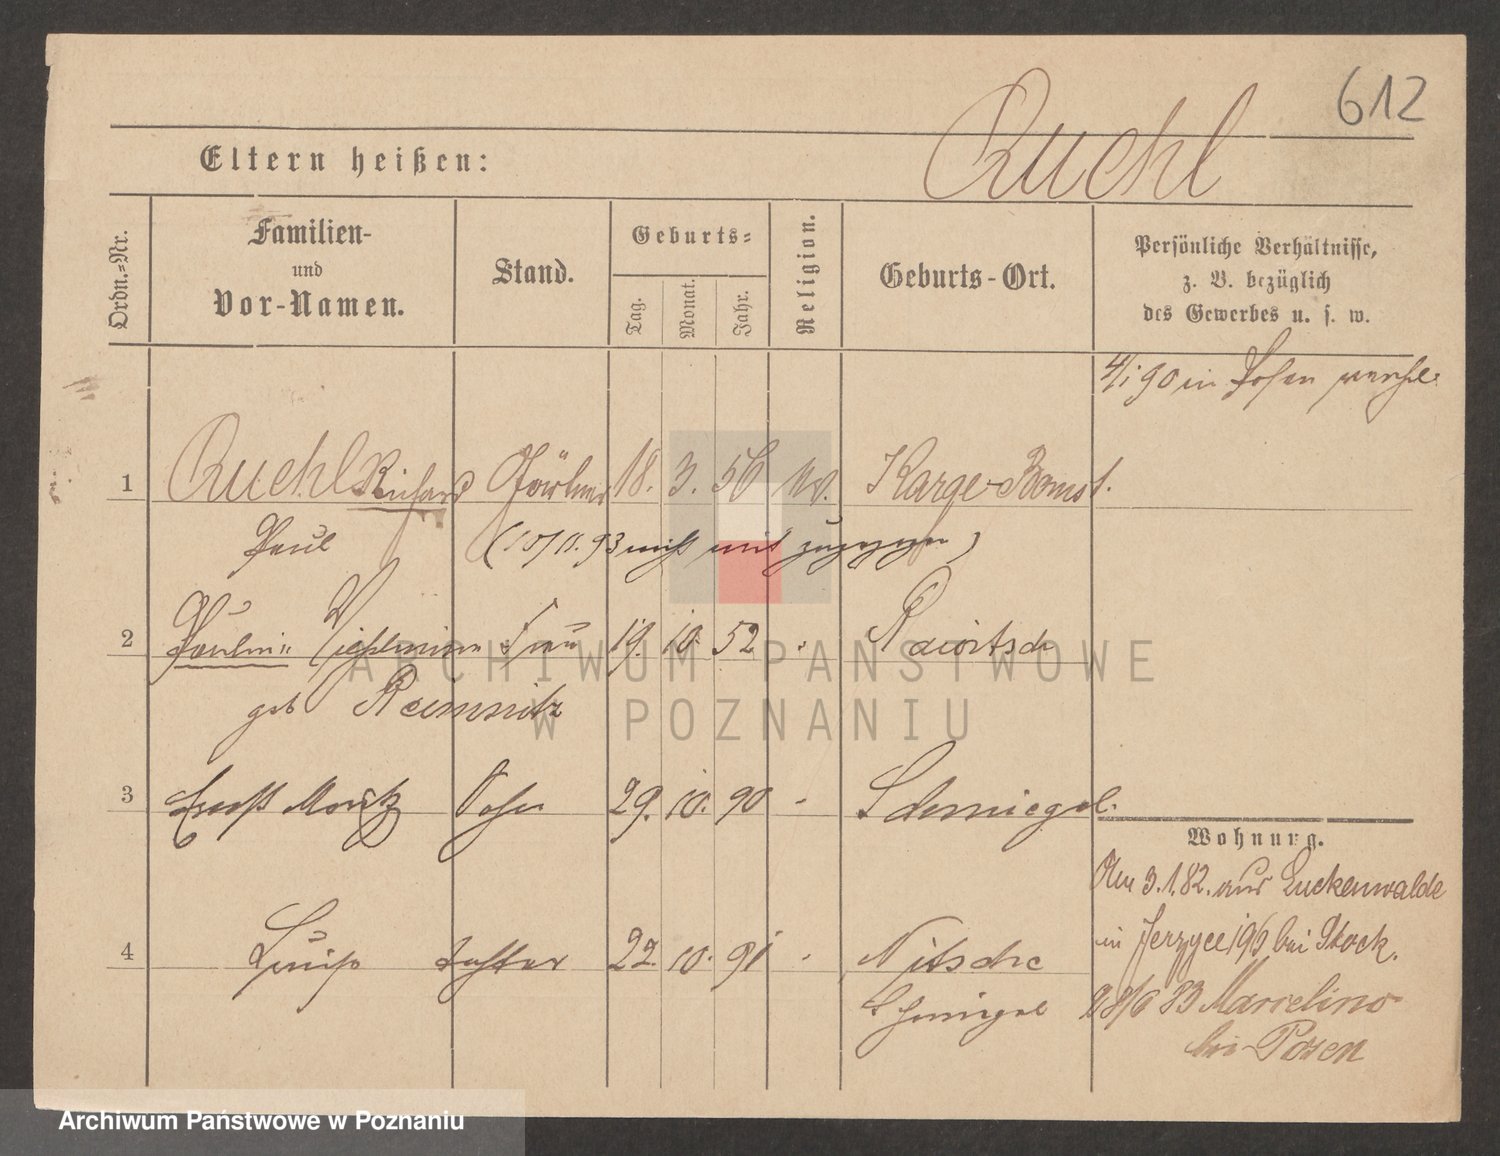 612
Ruehl
Eltern heißen:
Ordn.=Nr.
Familien-
und
Vor-Namen.
Stand.
Geburts=
Tag.
Monat.
Jahr.
Religion.
Geburts-Ort.
Persönliche Verhältnisse,
z. B. bezüglich
des Gewerbes u. s. w.
4/1 90 in Posen
1 Ruehl Richard Gärtner 18. 3. 56 ev. Karge-Bomst.
Paul (10/11. 93 mit zugezogen)
2 Pauline Frau 19. 10. 52 Rawitsch
geb
3 Ernst Moritz Sohn 29. 10. 90 - Schmiegel.
4 Luise Tochter 22. 10. 91 Nitsche
Schmiegel
Wohnung.
Am 3.1.82. aus Luckenwalde
in Jerzyce 196 bei
28/6 83 Marcelino
bei Posen
ARCHIWUM PAŃSTWOWE
W POZNANIU
Archiwum Państwowe w Poznaniu